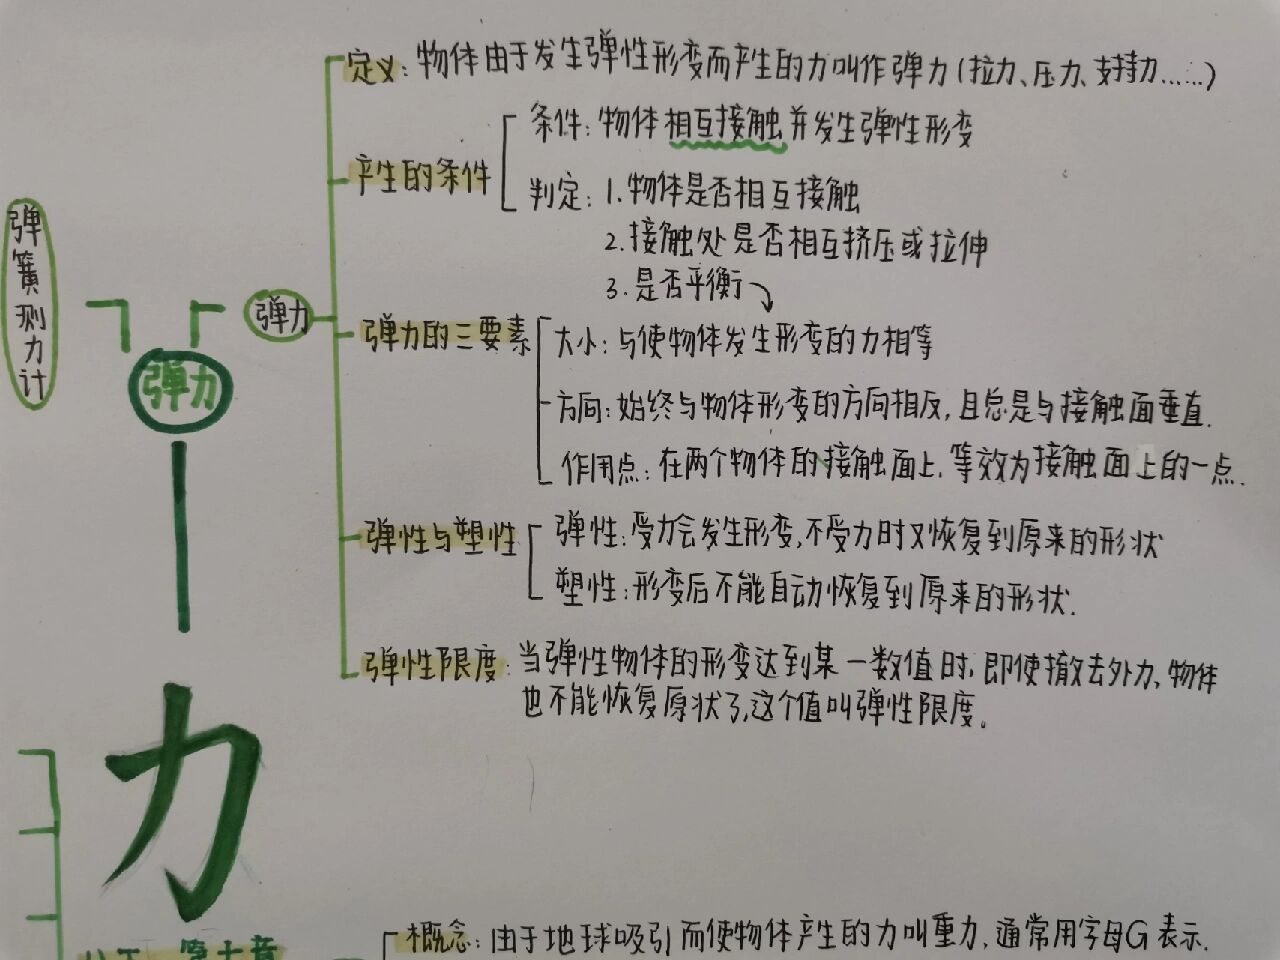 定义：物体由于发生弹性形变而产生的力叫作弹力（拉力、压力、支持力……）
产生的条件
条件：物体相互接触并发生弹性形变
判定：1.物体是否相互接触
2.接触处是否相互挤压或拉伸
3.是否平衡
弹簧测力计
弹力
弹力
弹力的三要素
大小：与使物体发生形变的力相等
方向：始终与物体形变的方向相反，且总是与接触面垂直.
作用点：在两个物体的接触面上，等效为接触面上的一点.
弹性与塑性
弹性：受力会发生形变，不受力时又恢复到原来的形状
塑性：形变后不能自动恢复到原来的形状.
弹性限度：当弹性物体的形变达到某一数值时，即使撤去外力，物体
也不能恢复原状了，这个值叫弹性限度。
力
概念：由于地球吸引而使物体产生的力叫重力，通常用字母G表示.
第七章